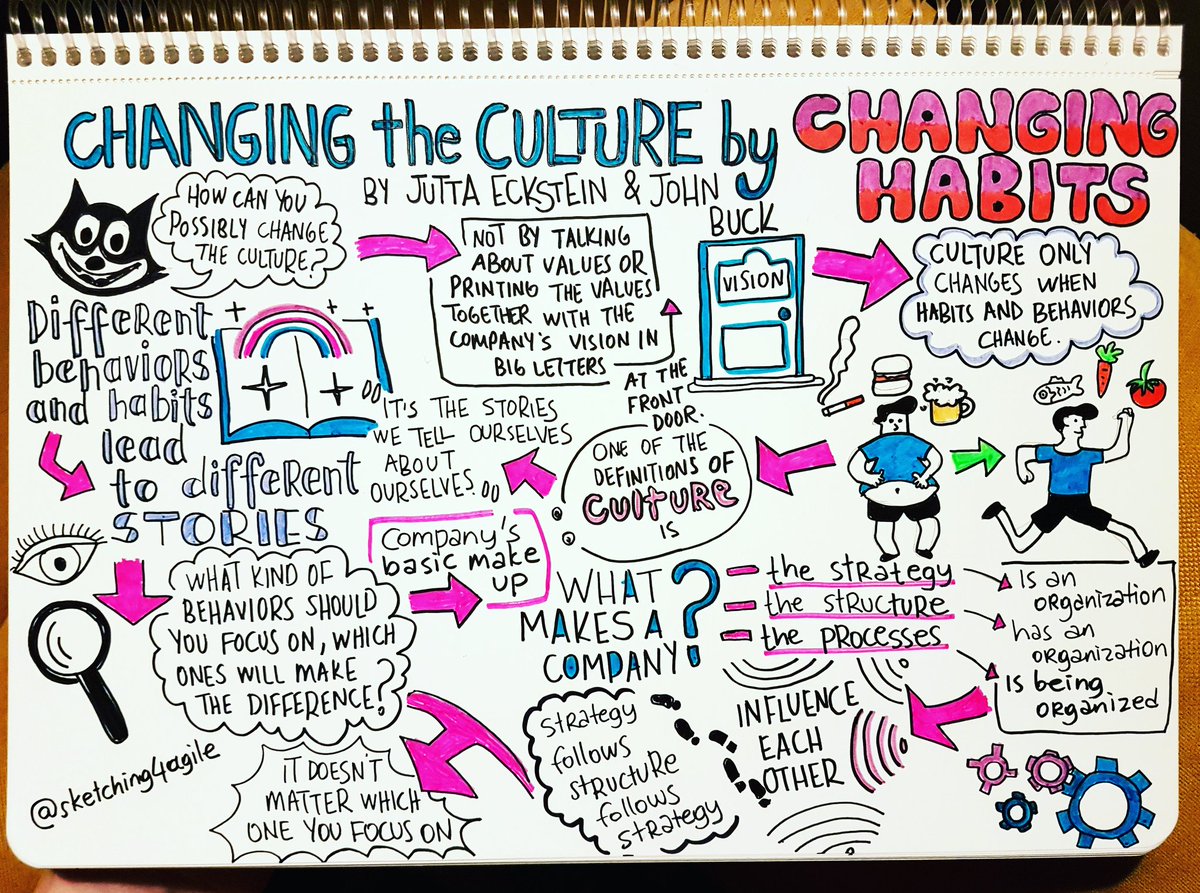 CHANGING the CULTURE by
CHANGING
HABITS
BY JUTTA ECKSTEIN & JOHN
BUCK
HOW CAN YOU
POSSIBLY CHANGE
THE CULTURE?
NOT BY TALKING
ABOUT VALUES OR
PRINTING THE VALUES
TOGETHER WITH THE
COMPANY'S VISION IN
BIG LETTERS
AT THE
FRONT
DOOR.
VISION
CULTURE ONLY
CHANGES WHEN
HABITS AND BEHAVIORS
CHANGE.
ONE OF THE
DEFINITIONS OF
CULTURE
IS
IT'S THE STORIES
WE TELL OURSELVES
ABOUT
OURSELVES.
Different
behaviors
and habits
lead
to different
STORIES
WHAT KIND OF
BEHAVIORS SHOULD
YOU FOCUS ON, WHICH
ONES WILL MAKE
THE DIFFERENCE?
Company's
basic make
up
WHAT
MAKES A
COMPANY?
- the STRATEGY
- the STRUCTURE
- the PROCESSES
IS an
organization
has an
organization
Is being
organized
INFLUENCE
EACH
OTHER
STRATEGY
follows
STRUCTURE
follows
STRATEGY
IT DOESN'T
MATTER WHICH
ONE YOU FOCUS ON
@sketching4agile